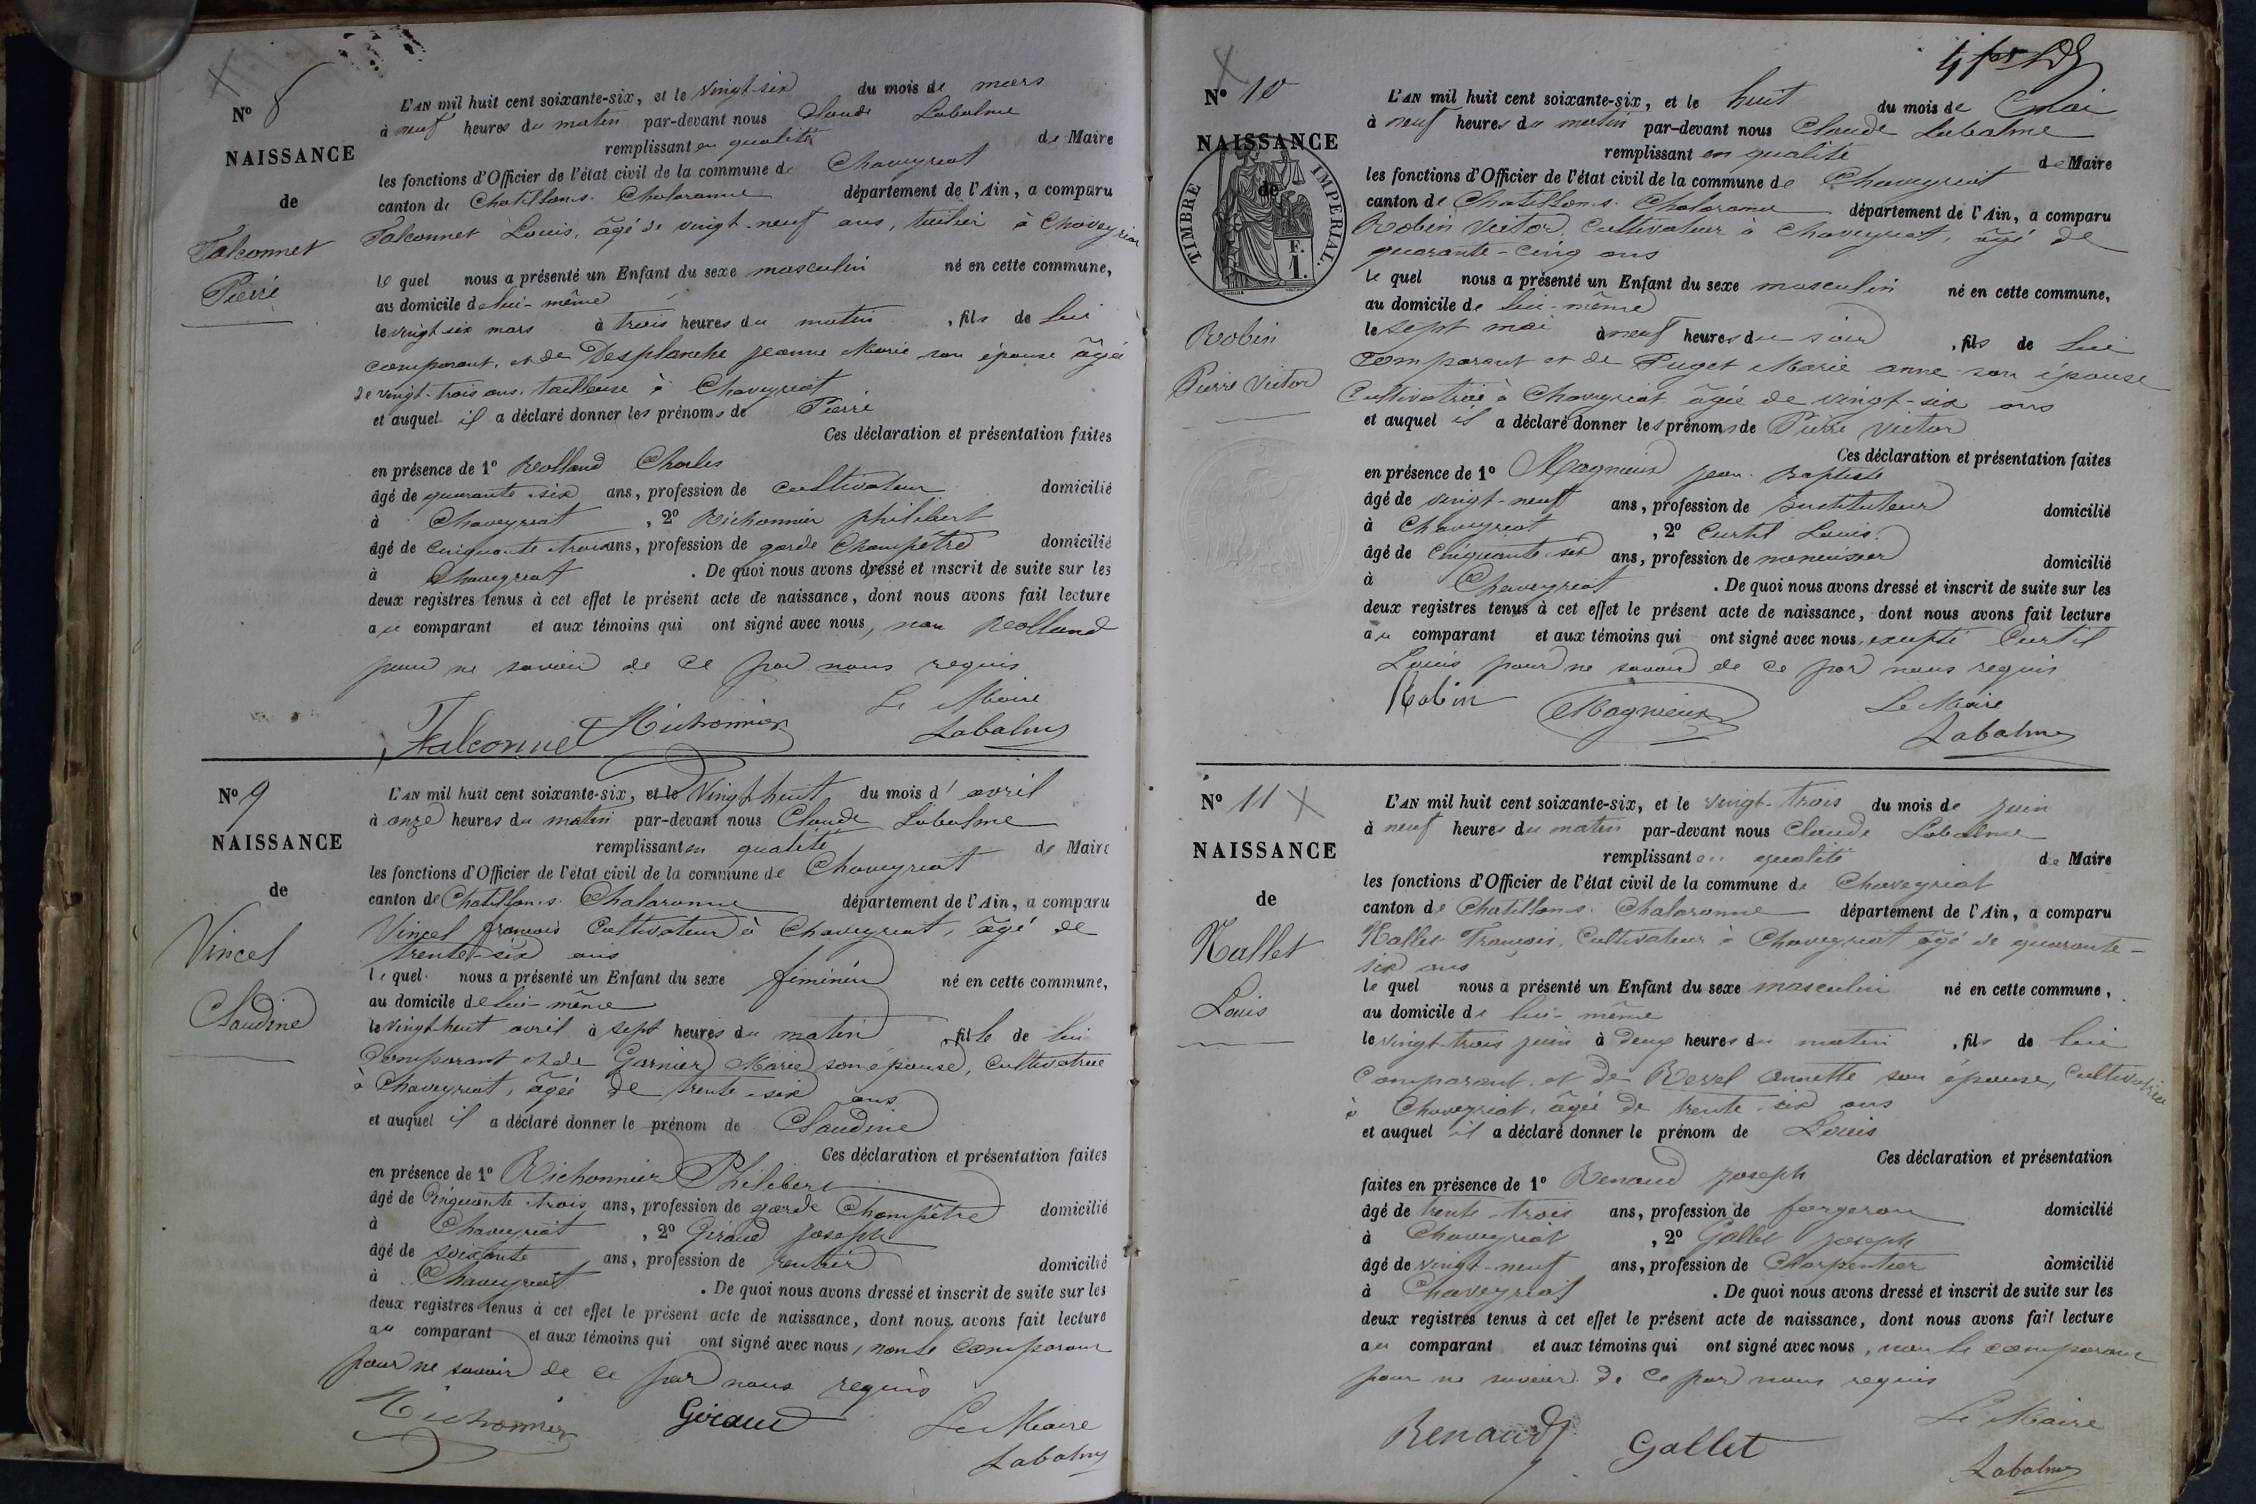 N° 8
NAISSANCE
de
Falconnet
Pierre
L'AN mil huit cent soixante-six, et le vingt-six du mois de mars
à neuf heures du matin par-devant nous Claude Labalme
remplissant en qualité de Maire
les fonctions d'Officier de l'état civil de la commune de Chaveyriat
canton de Chatillon s. Chalaronne département de l'Ain, a comparu
Falconnet Louis, âgé de vingt-neuf ans, à Chaveyriat
le quel nous a présenté un Enfant du sexe masculin né en cette commune,
au domicile de lui-même
le vingt six mars à trois heures du matin, fils de lui
comparant, et de Desplanche Jeanne Marie son épouse âgée
de vingt-trois ans, tailleuse à Chaveyriat
et auquel il a déclaré donner les prénoms de Pierre
Ces déclaration et présentation faites
en présence de 1° Rolland Charles
âgé de quarante-six ans, profession de cultivateur domicilié
à Chaveyriat, 2° Richonnier philibert
âgé de cinquante trois ans, profession de garde champêtre domicilié
à Chaveyriat. De quoi nous avons dressé et inscrit de suite sur les
deux registres tenus à cet effet le présent acte de naissance, dont nous avons fait lecture
au comparant et aux témoins qui ont signé avec nous, non Rolland
pour ne savoir de ce par nous requis
Le Maire
Falconnet Richonnier Labalme
N° 9
NAISSANCE
de
Vincel
Claudine
L'AN mil huit cent soixante-six, et le vingt huit du mois d'avril
à onze heures du matin par-devant nous Claude Labalme
remplissant en qualité de Maire
les fonctions d'Officier de l'état civil de la commune de Chaveyriat
canton de Chatillon s. Chalaronne département de l'Ain, a comparu
Vincel françois Cultivateur à Chaveyriat, âgé de
trente-six ans
le quel nous a présenté un Enfant du sexe féminin né en cette commune,
au domicile de lui-même
le vingt huit avril à sept heures du matin, fille de lui
comparant et de Garnier Marie son épouse, cultivatrice
à Chaveyriat, âgée de trente-six ans
et auquel il a déclaré donner le prénom de Claudine
Ces déclaration et présentation faites
en présence de 1° Richonnier Philibert
âgé de Cinquante trois ans, profession de garde Champêtre domicilié
à Chaveyriat, 2° Giraud Joseph
âgé de soixante ans, profession de rentier domicilié
à Chaveyriat. De quoi nous avons dressé et inscrit de suite sur les
deux registres tenus à cet effet le présent acte de naissance, dont nous avons fait lecture
au comparant et aux témoins qui ont signé avec nous, non le comparant
pour ne savoir de ce par nous requis
Richonnier Giraud Le Maire
Labalme
N° 10
NAISSANCE
de
TIMBRE IMPERIAL.
F.
1.
Robin
Pierre Victor
L'AN mil huit cent soixante-six, et le huit du mois de Mai
à neuf heures du matin par-devant nous Claude Labalme
remplissant en qualité de Maire
les fonctions d'Officier de l'état civil de la commune de Chaveyriat
canton de Chatillon s. Chalaronne département de l'Ain, a comparu
Robin Victor, Cultivateur à Chaveyriat, âgé de
quarante-cinq ans
le quel nous a présenté un Enfant du sexe masculin né en cette commune,
au domicile de lui-même
le sept mai à neuf heures du soir, fils de lui
comparant et de Puget Marie anne son épouse
Cultivatrice à Chaveyriat âgée de vingt-six ans
et auquel il a déclaré donner les prénoms de Pierre Victor
Ces déclaration et présentation faites
en présence de 1° Magnieux Jean-Baptiste
âgé de vingt-neuf ans, profession de Instituteur domicilié
à Chaveyriat, 2° Curtil Louis
âgé de cinquante-six ans, profession de menuisier domicilié
à Chaveyriat. De quoi nous avons dressé et inscrit de suite sur les
deux registres tenus à cet effet le présent acte de naissance, dont nous avons fait lecture
au comparant et aux témoins qui ont signé avec nous, excepté Curtil
Louis pour ne savoir de ce par nous requis
Robin Magnieux Le Maire
Labalme
N° 11
NAISSANCE
de
Nallet
Louis
L'AN mil huit cent soixante-six, et le vingt-trois du mois de juin
à neuf heures du matin par-devant nous Claude Labalme
remplissant en qualité de Maire
les fonctions d'Officier de l'état civil de la commune de Chaveyriat
canton de Chatillon s. Chalaronne département de l'Ain, a comparu
Nallet François, Cultivateur à Chaveyriat âgé de quarante-
six ans
le quel nous a présenté un Enfant du sexe masculin né en cette commune,
au domicile de lui-même
le vingt-trois juin à deux heures du matin, fils de lui
Comparant, et de Revel Annette son épouse, Cultivatrice
à Chaveyriat, âgée de trente-six ans
et auquel il a déclaré donner le prénom de Louis
Ces déclaration et présentation
faites en présence de 1° Renaud Joseph
âgé de trente-trois ans, profession de forgeron domicilié
à Chaveyriat, 2° Gallet Joseph
âgé de vingt-neuf ans, profession de Charpentier domicilié
à Chaveyriat. De quoi nous avons dressé et inscrit de suite sur les
deux registres tenus à cet effet le présent acte de naissance, dont nous avons fait lecture
au comparant et aux témoins qui ont signé avec nous, non le comparant
pour ne savoir de ce par nous requis
Le Maire
Renaud Gallet Labalme